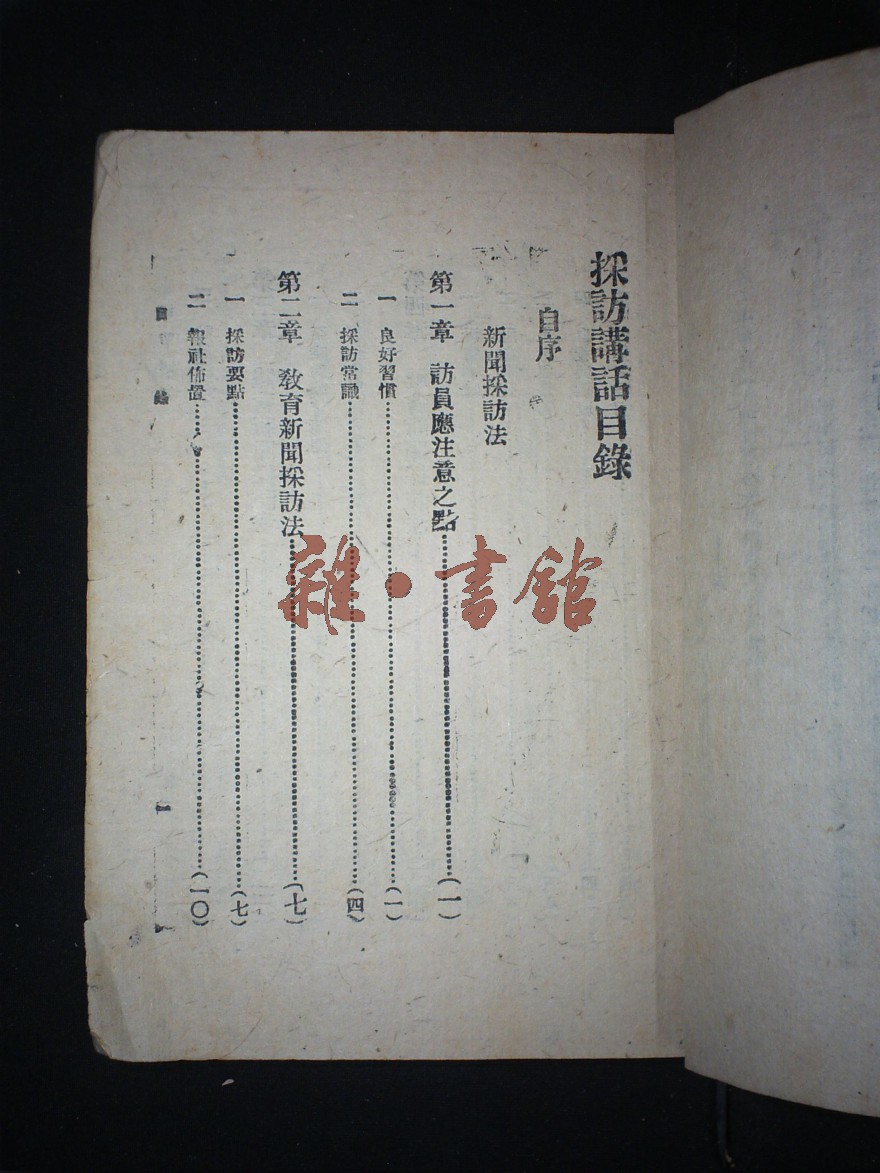 採訪講話目錄
自序
新聞採訪法
第一章　訪員應注意之點……(一)
一　良好習慣……(一)
二　採訪常識……(四)
第二章　教育新聞採訪法……(七)
一　採訪要點……(七)
二　報社佈置……(一〇)
目錄
一
雜·書館